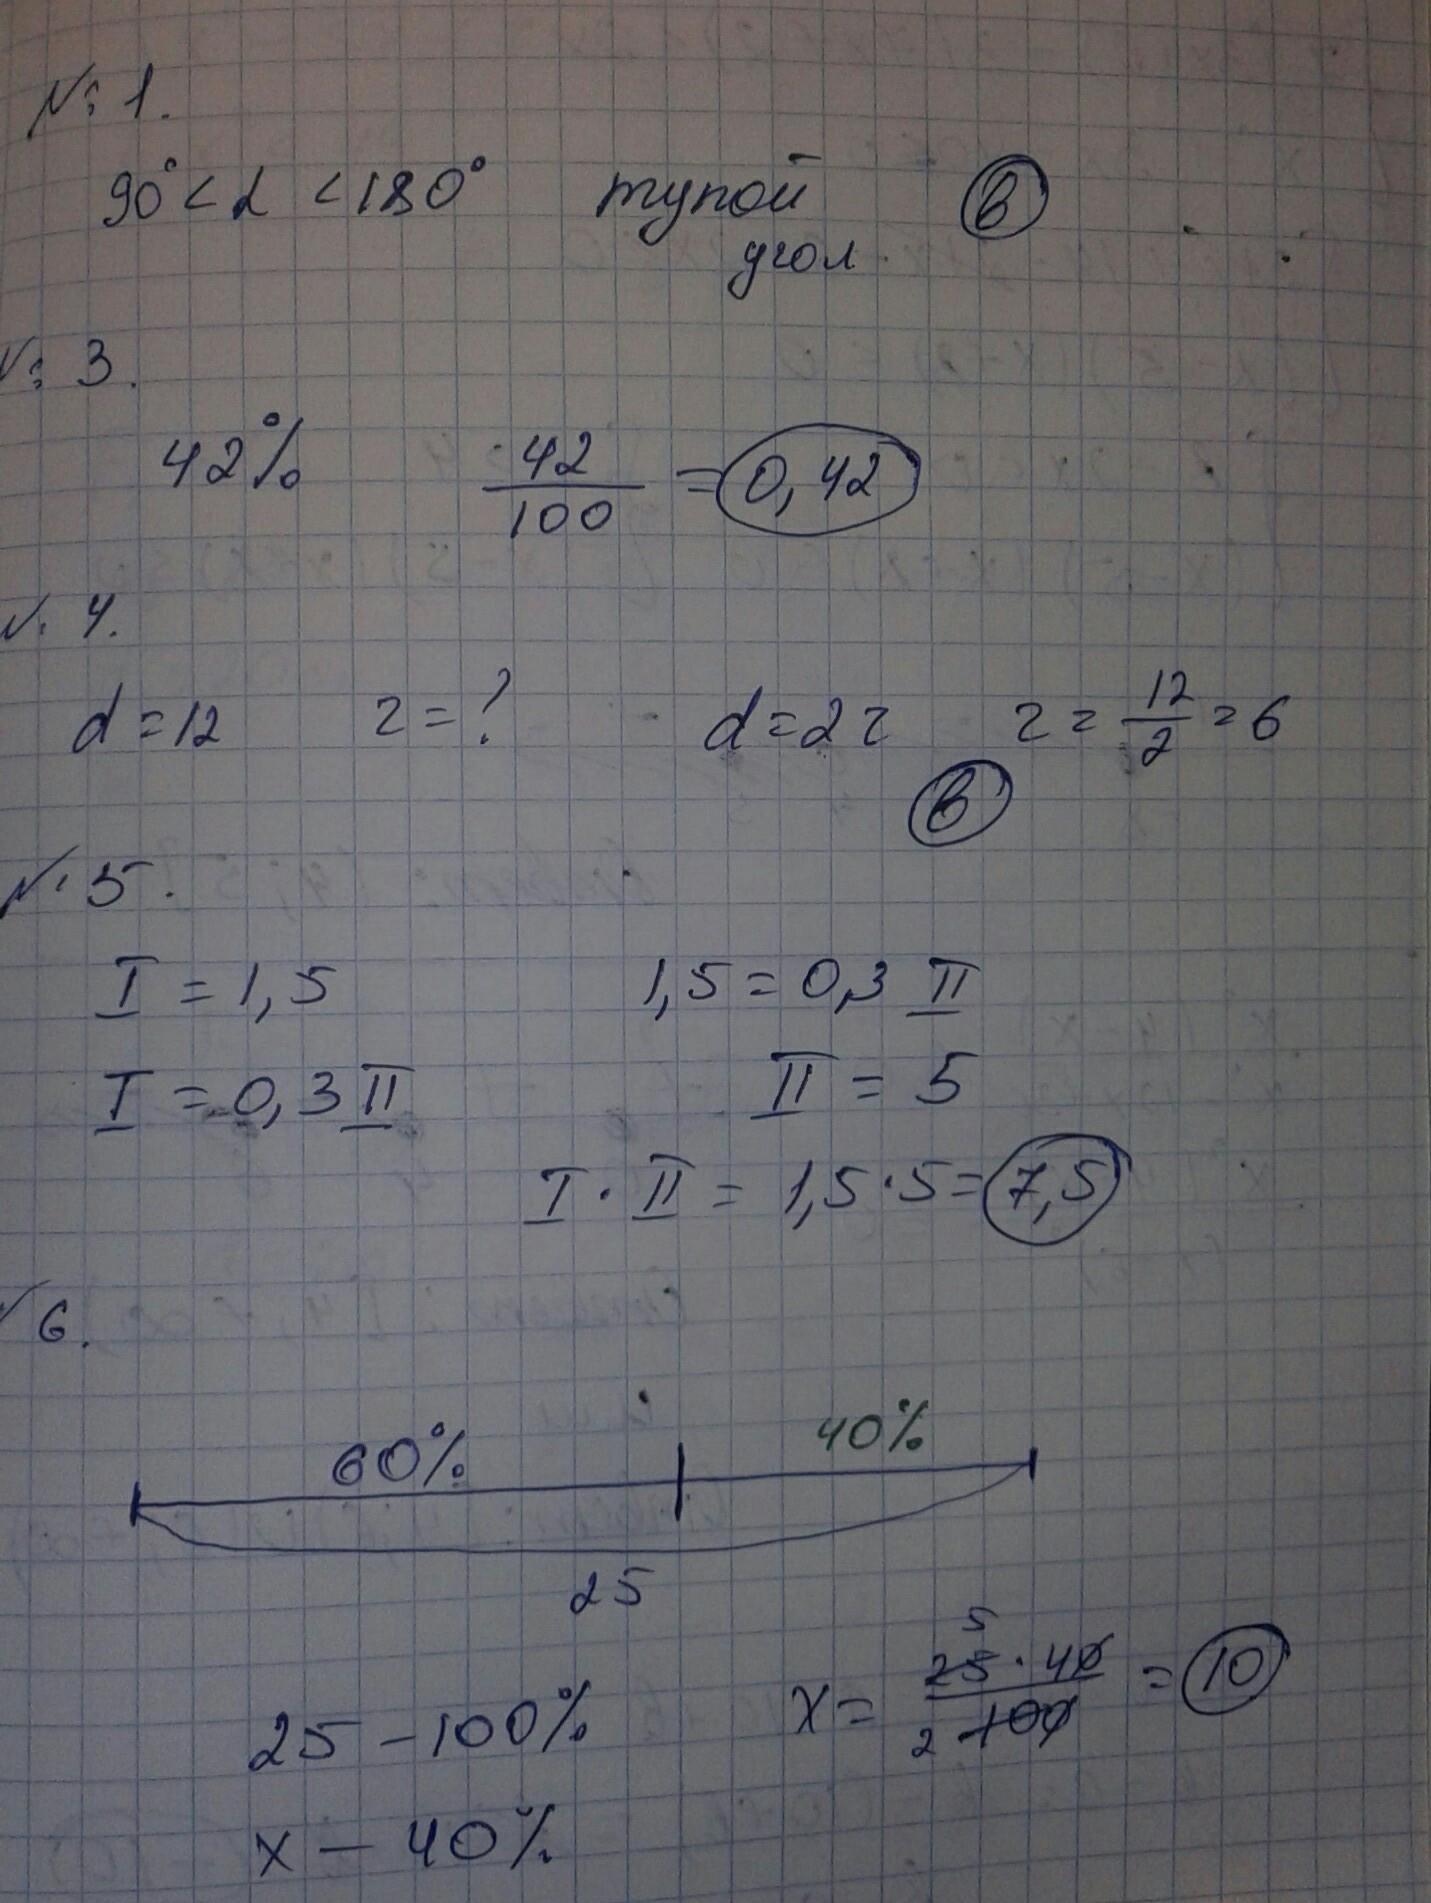 № 1.
90° < α < 180° тупой угол В
№ 3.
42% 42/100 = 0,42
№ 4.
d = 12 r = ? d = 2r r = 12/2 = 6
В
№ 5.
I = 1,5 1,5 = 0,3 II
I = 0,3 II II = 5
I · II = 1,5 · 5 = 7,5
№ 6.
60% 40%
25
25 – 100% x = 25 · 40 / 100 = 10
5
2
x – 40%